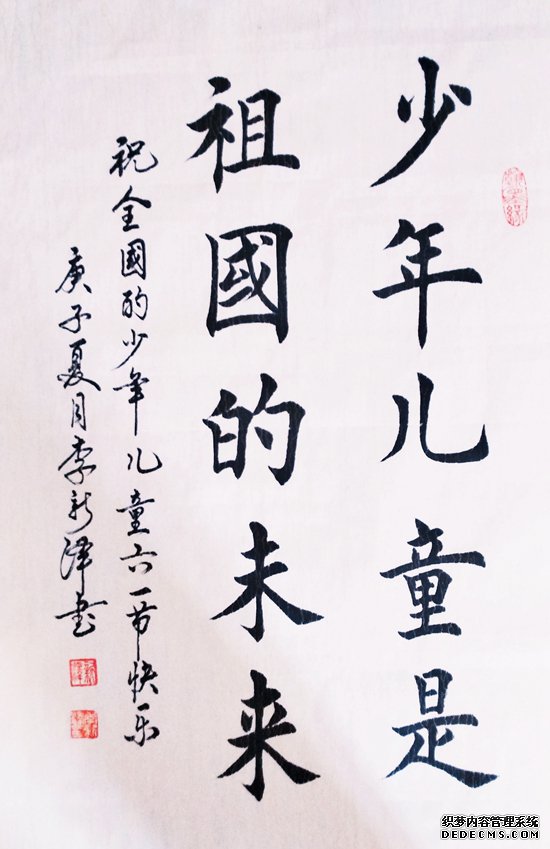 少年儿童是
祖國的未来
祝全國的少年儿童六一节快乐
庚子夏月李新泽书
织梦内容管理系统
DEDECMS.COM